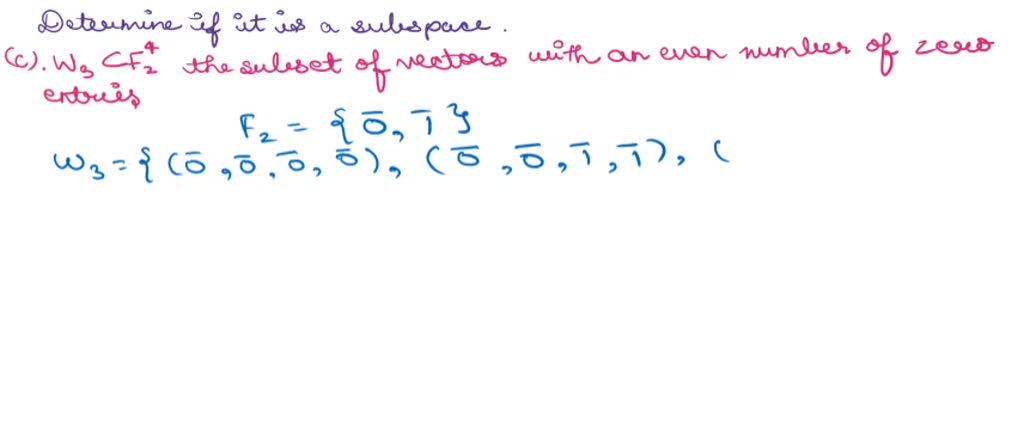 Determine if it is a subspace.
(c). W₃ ⊂ F₂⁴ the subset of vectors with an even number of zero
entries
F₂ = { 0̅, 1̅ }
W₃ = { (0̅, 0̅, 0̅, 0̅), (0̅, 0̅, 1̅, 1̅), (